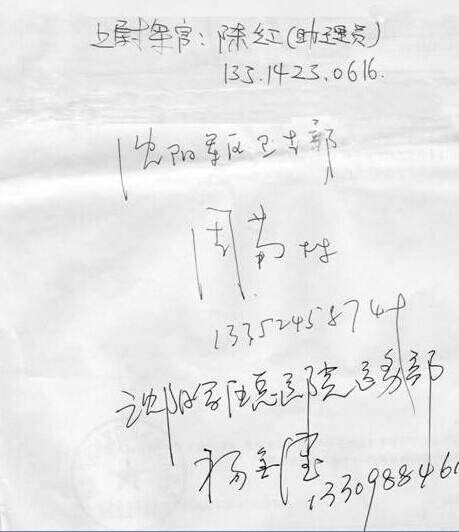 上尉军官：陈红(助理员)
133.1423.0616.
沈阳军区卫生部
周尚
13352458744
沈阳军区总医院医务部
杨
133098846